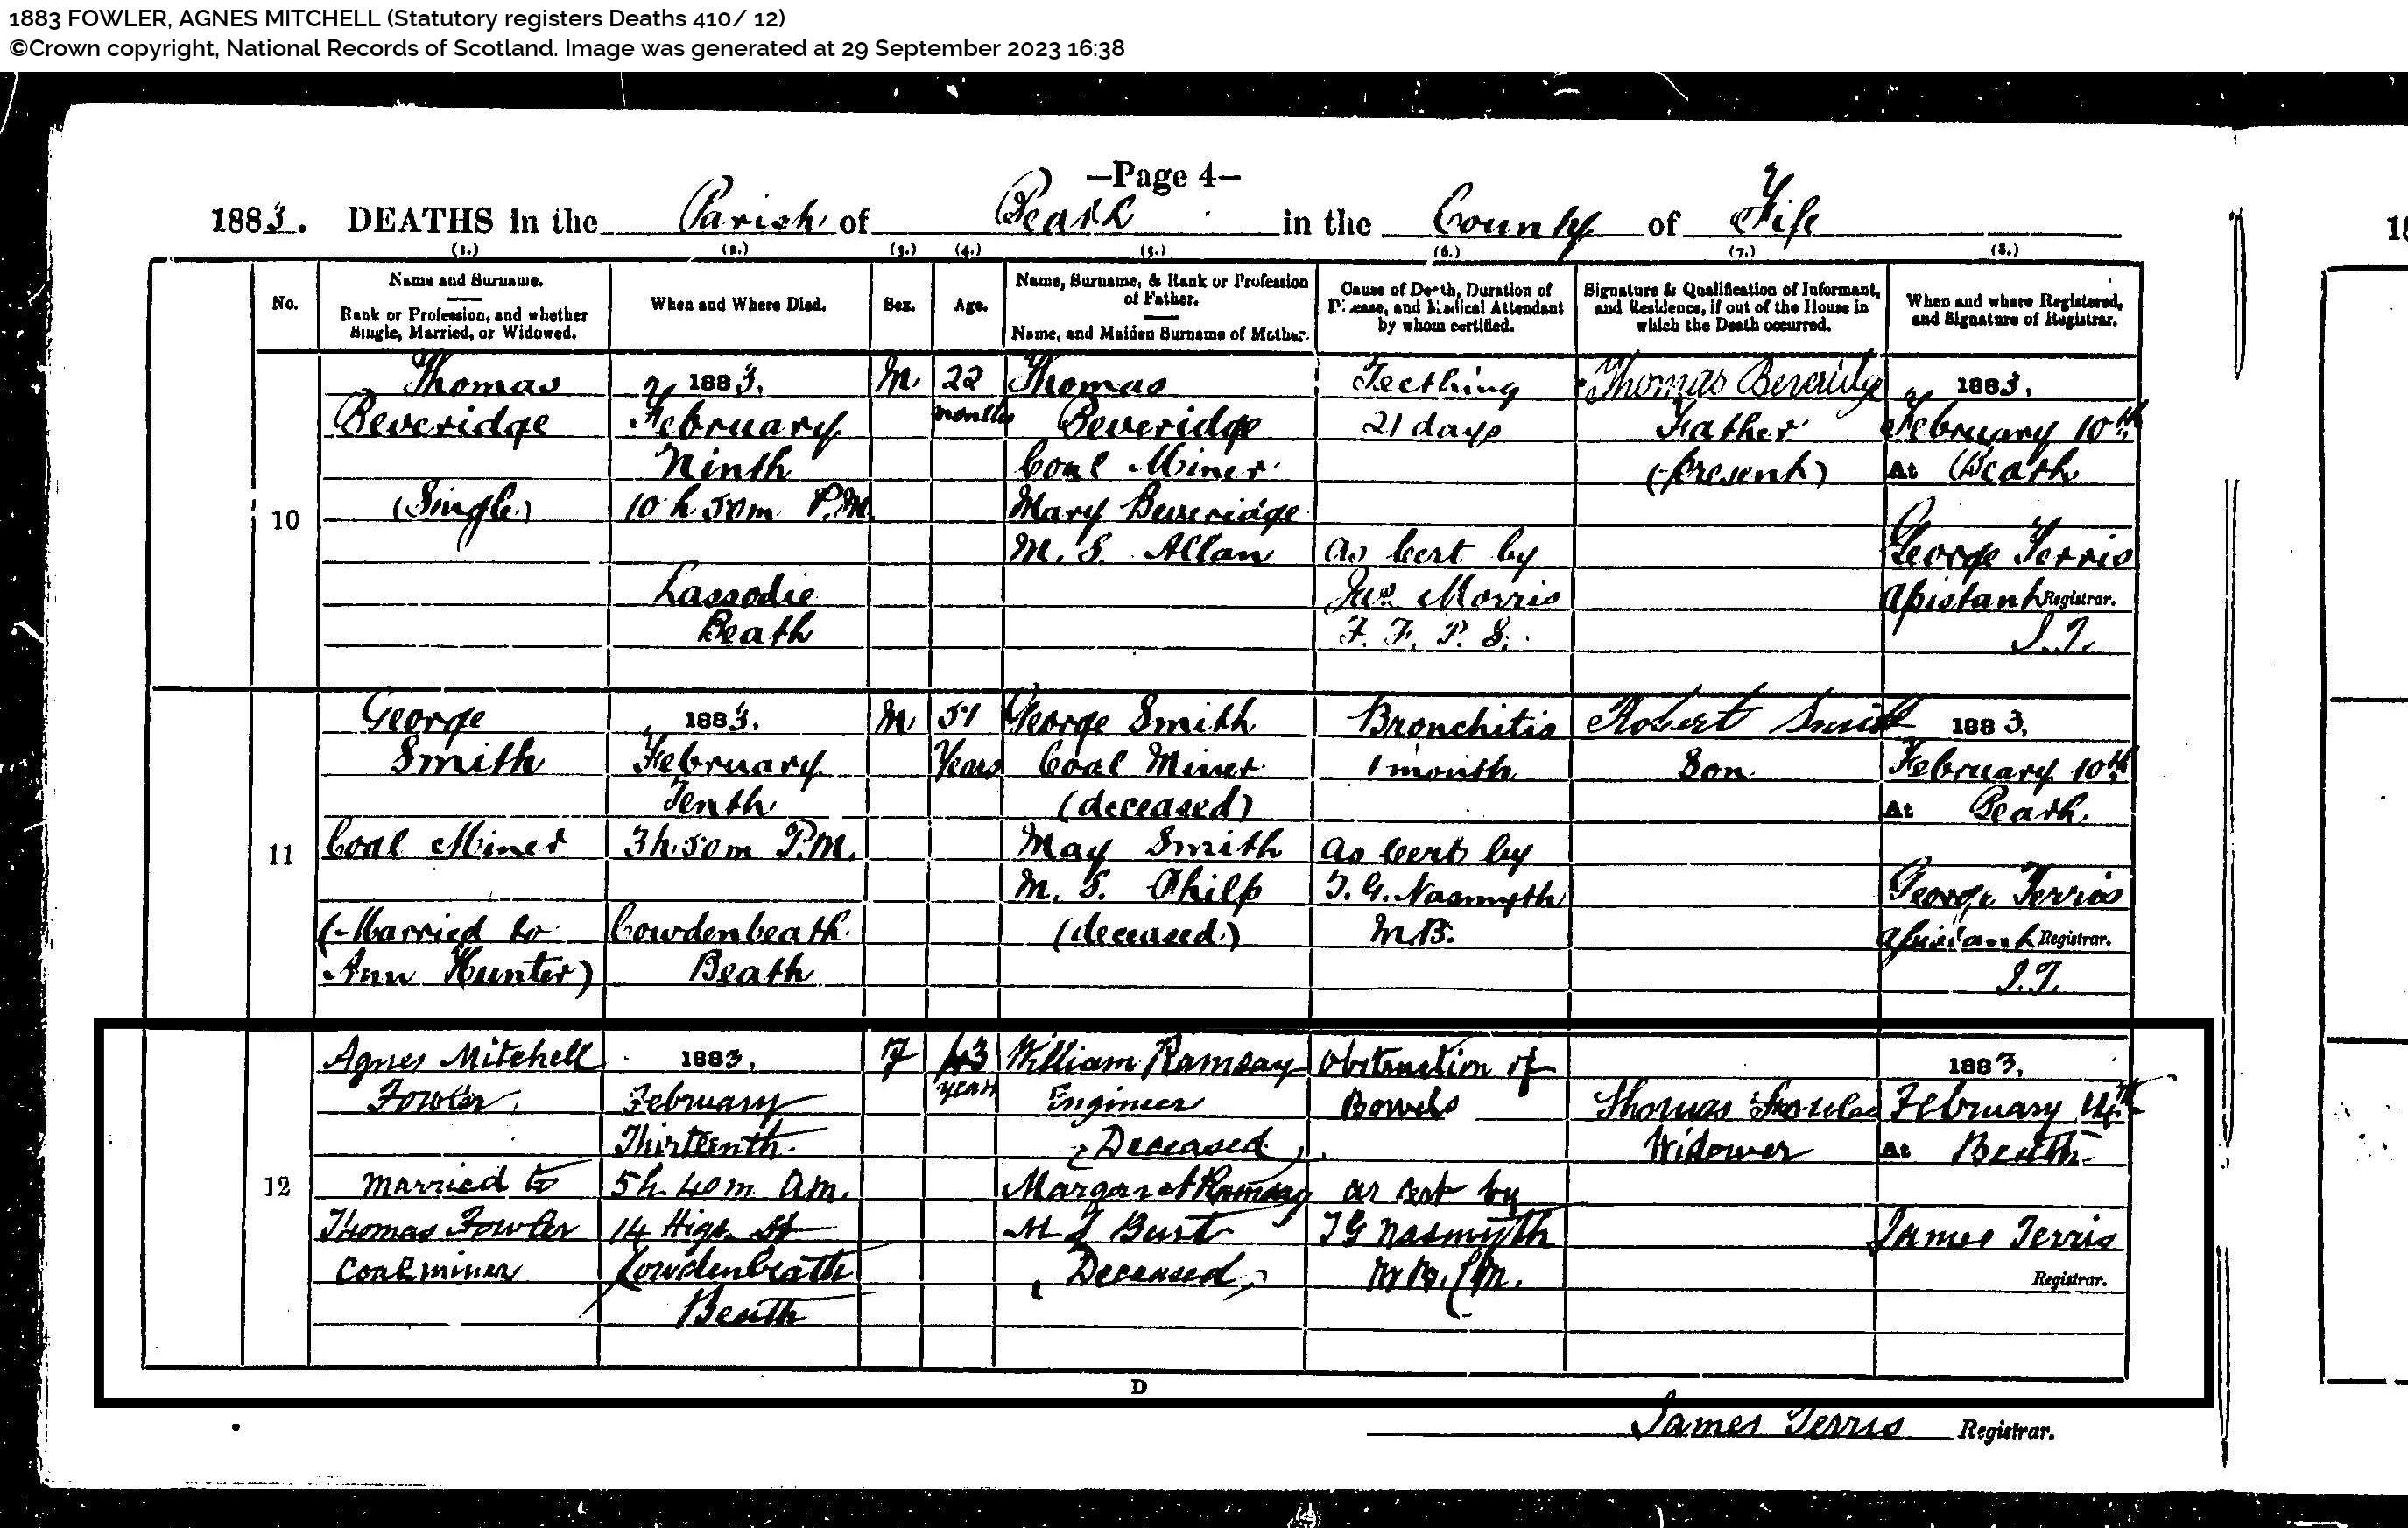 1883 FOWLER, AGNES MITCHELL (Statutory registers Deaths 410/ 12)
©Crown copyright, National Records of Scotland. Image was generated at 29 September 2023 16:38
—Page 4—
1883. DEATHS in the Parish of Beath in the County of Fife
(1.) (2.) (3.) (4.) (5.) (6.) (7.) (8.)
No.
Name and Surname.
Rank or Profession, and whether
Single, Married, or Widowed.
When and Where Died.
Sex.
Age.
Name, Surname, & Rank or Profession
of Father.
Name, and Maiden Surname of Mother.
Cause of Death, Duration of
Disease, and Medical Attendant
by whom certified.
Signature & Qualification of Informant,
and Residence, if out of the House in
which the Death occurred.
When and where Registered,
and Signature of Registrar.
10
Thomas
Beveridge
(Single)
1883.
February
Ninth
10 h 50m P.M.
Lassodie
Beath
M.
22
months
Thomas
Beveridge
Coal Miner
Mary Beveridge
M. S. Allan
Teething
21 days
as Cert by
Jas. Morris
F. F. P. S.
Thomas Beveridge
Father
(Present)
1883.
February 10th
At Beath
George Terris
Assistant Registrar.
J.T.
11
George
Smith
Coal Miner
(Married to
Ann Hunter)
1883.
February
Tenth
3h 50m P.M.
Cowdenbeath
Beath
M
Years
George Smith
Coal Miner
(deceased)
May Smith
M. S. Philp
(deceased)
Bronchitis
1 month
as Cert by
T. G. Nasmyth
M.B.
Robert Smith
Son
1883.
February 10th
At Beath
George Terris
Assistant Registrar.
J.T.
12
Agnes Mitchell
Fowler
Married to
Thomas Fowler
Coalminer
1883.
February
Thirteenth
5h 40m AM.
14 High St
Cowdenbeath
Beath
F
43
years
William Ramsay
Engineer
(Deceased)
Margaret Ramsay
M S Burt
(Deceased)
Obstruction of
Bowels
as cert by
T G Nasmyth
M.B. CM.
Thomas Fowler
Widower
1883.
February 14th
At Beath
James Terris
Registrar.
D
James Terris Registrar.
18